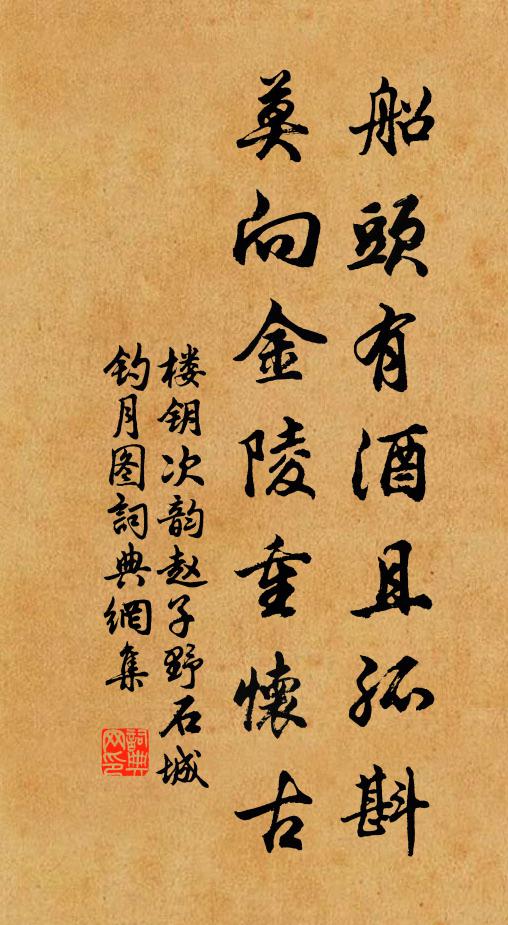 船頭有酒且孤斟
莫向金陵重懷古
楼钥次韵赵子野石城
钓月图詞典網集
詞典网印